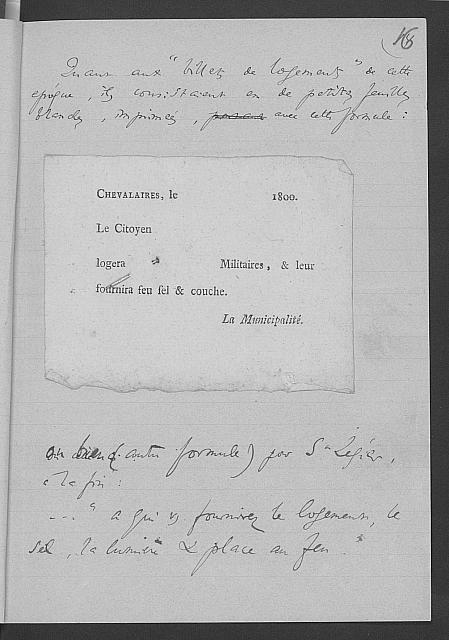 18
Quant aux "billets de logements" de cette
époque, ils consistaient en de petites feuilles
blanches, imprimées, avec cette formule :
CHEVALAIRES, le 1800.
Le Citoyen
logera Militaires, & leur
fournira feu sel & couche.
La Municipalité.
ou bien (autre formule) pour St Légier,
à la fin :
... "à qui vs fournirez le logement, le
sel, la lumière & place au feu.